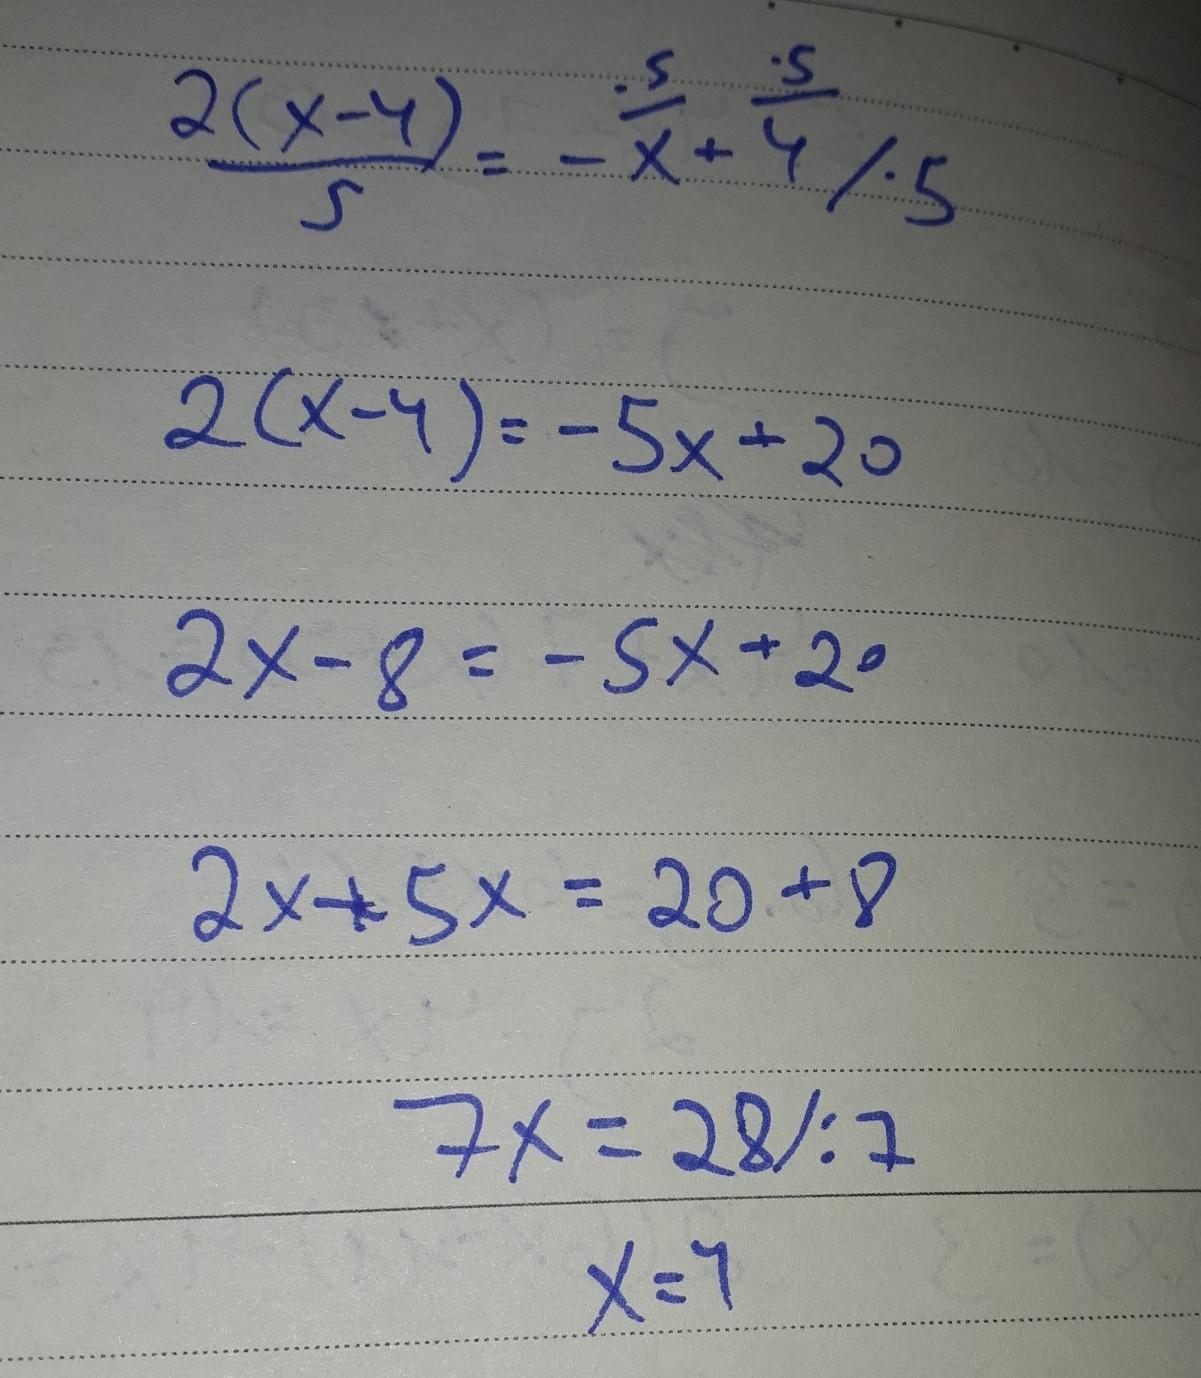 ·5 ·5
2(x-4)/5 = -x + 4 /·5
2(x-4) = -5x + 20
2x - 8 = -5x + 20
2x + 5x = 20 + 8
7x = 28 /:7
x = 4